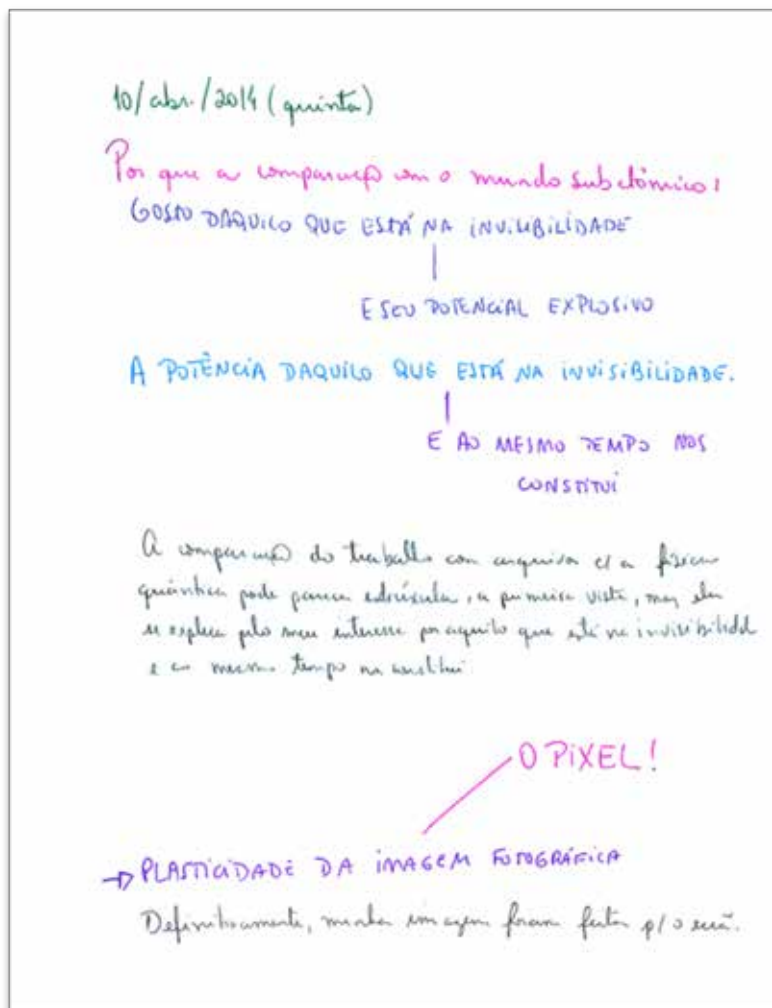 10/abr./2014 (quinta)
Por que a comparação com o mundo subatômico?
GOSTO DAQUILO QUE ESTÁ NA INVISIBILIDADE
E SEU POTENCIAL EXPLOSIVO
A POTÊNCIA DAQUILO QUE ESTÁ NA INVISIBILIDADE.
E AO MESMO TEMPO NOS
CONSTITUI
A comparação do trabalho com arquivos c/ a física
quântica pode parecer esdrúxula, a primeira vista, mas ela
se explica pelo meu interesse por aquilo que está na invisibilidade
e ao mesmo tempo nos constitui
O PIXEL!
PLASTICIDADE DA IMAGEM FOTOGRÁFICA
Definitivamente, minhas imagens foram feitas p/ o